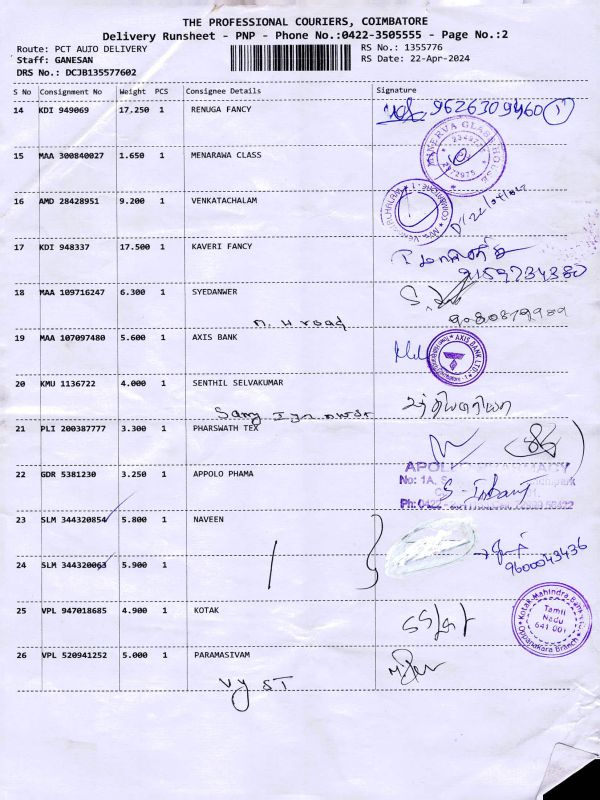 THE PROFESSIONAL COURIERS, COIMBATORE
Delivery Runsheet - PNP - Phone No.:0422-3505555 - Page No.:2
Route: PCT AUTO DELIVERY
RS No.: 1355776
Staff: GANESAN
RS Date: 22-Apr-2024
DRS No.: DCJB135577602
S No Consignment No Weight PCS Consignee Details Signature
14 KDI 949069 17.250 1 RENUGA FANCY
9626309460 1
15 MAA 300840027 1.650 1 MENARAWA CLASS
MINERVA GLASS HOUSE
2472975
16 AMD 28428951 9.200 1 VENKATACHALAM
17 KDI 948337 17.500 1 KAVERI FANCY
9159734380
18 MAA 109716247 6.300 1 SYEDANWER
N. H road
9080879989
19 MAA 107097480 5.600 1 AXIS BANK
AXIS BANK LTD.
20 KMU 1136722 4.000 1 SENTHIL SELVAKUMAR
21 PLI 200387777 3.300 1 PHARSWATH TEX
22 GDR 5381230 3.250 1 APPOLO PHAMA
No: 1A, S
Ph: 0422
23 SLM 344320854 5.800 1 NAVEEN
24 SLM 344320063 5.900 1
9600043436
25 VPL 947018685 4.900 1 KOTAK
Kotak Mahindra Bank Ltd
Tamil
Nadu
641 001
Oppanakara Branch
26 VPL 520941252 5.000 1 PARAMASIVAM
Vy ST